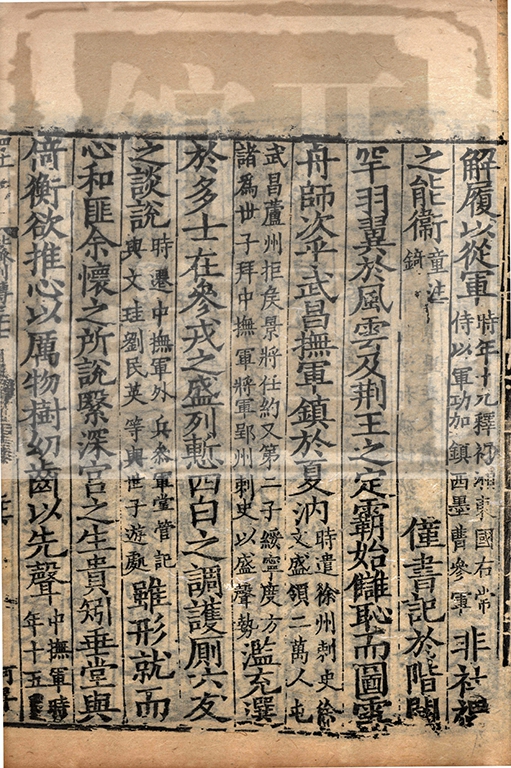 解履以從軍時年十九釋褐湘東國右常侍以軍功加鎮西墨曹參軍非社稷
之能衞童汪錡僅書記於階闥
罕羽翼於風雲及荆王之定霸始讎恥而圖雪
舟師次乎武昌撫軍鎮於夏汭時遣徐州刺史徐文盛領二萬人屯
武昌蘆州拒侯景將任約又第二子綏寧度方諸爲世子拜中撫軍將軍郢州刺史以盛聲勢濫充選
於多士在參戎之盛列慙四白之調護厠六友
之談說時遷中撫軍外兵參軍掌管記與文珪劉民英等與世子遊處雖形就而
心和匪余懷之所說繄深宮之生貴矧垂堂與
倚衡欲推心以厲物樹幼齒以先聲中撫軍時年十五